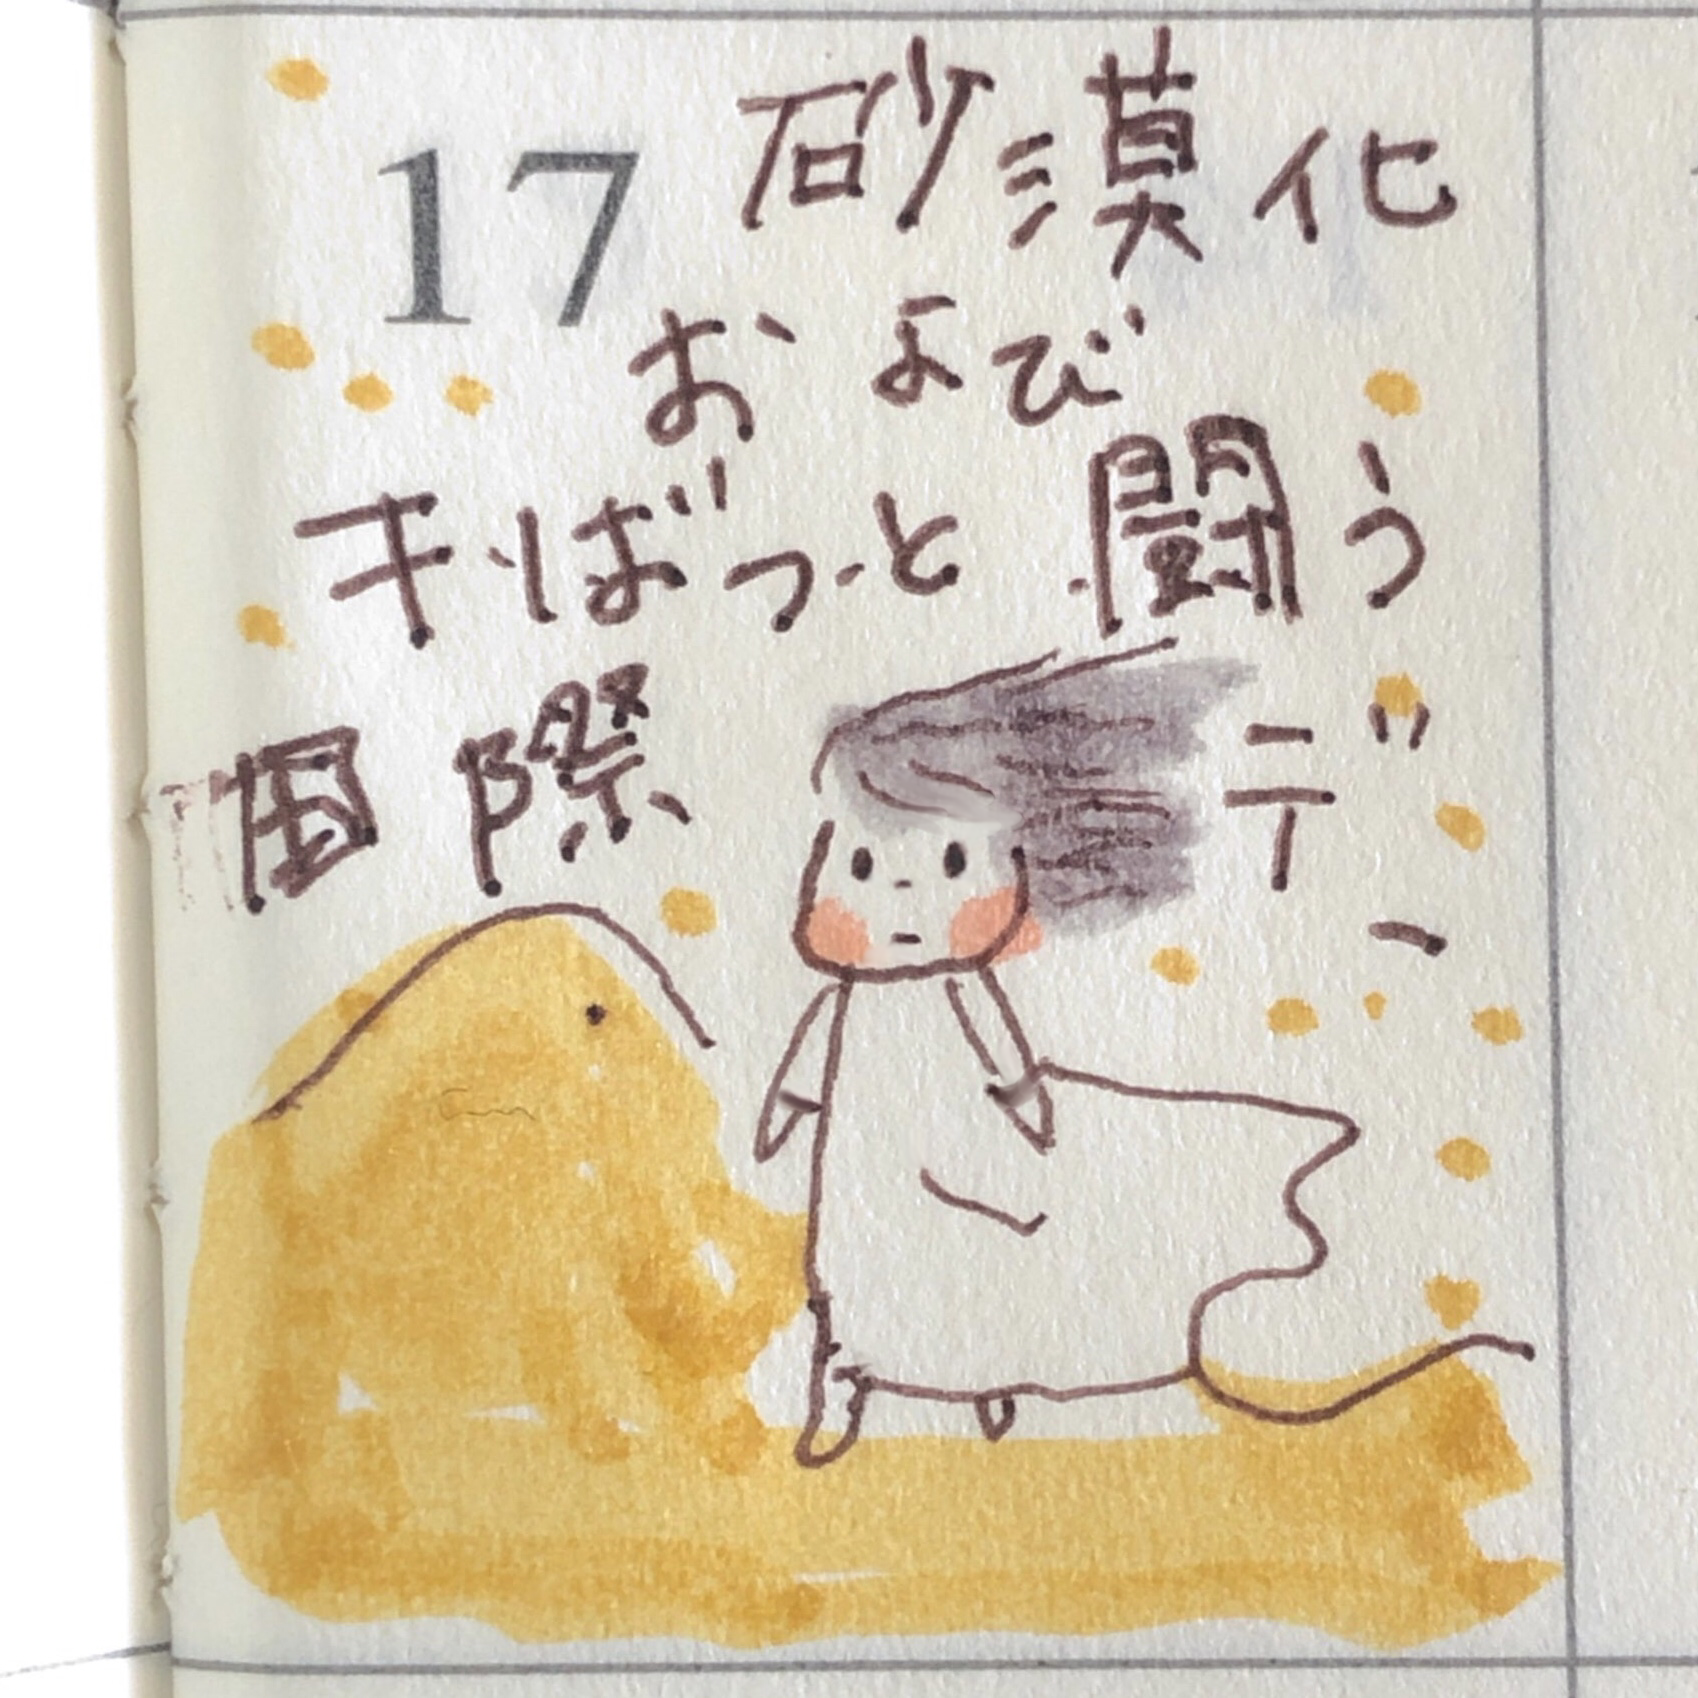 17 砂漠化
および
干ばつと闘う
国際デー